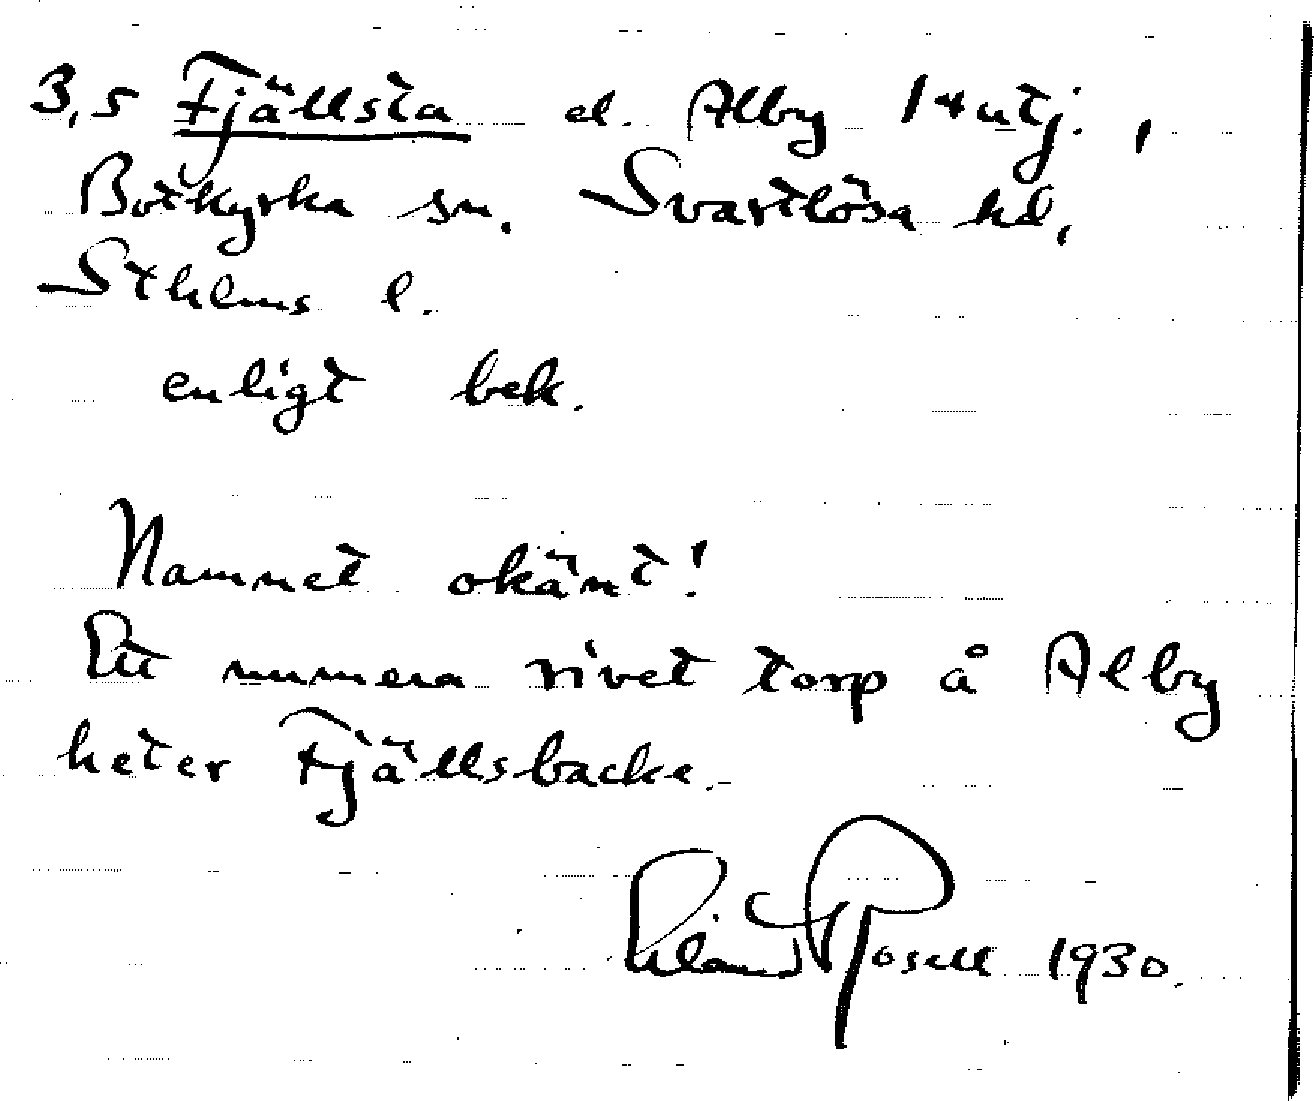 3,5 Fjällsta el. Alby 1 4 utj.,
Botkyrka sn. Svartlösa hd,
Sthlms l.
enligt bek.
Namnet okänt!
Ett numera rivet torp å Alby
heter Fjällsbacke.
Rosell 1930.